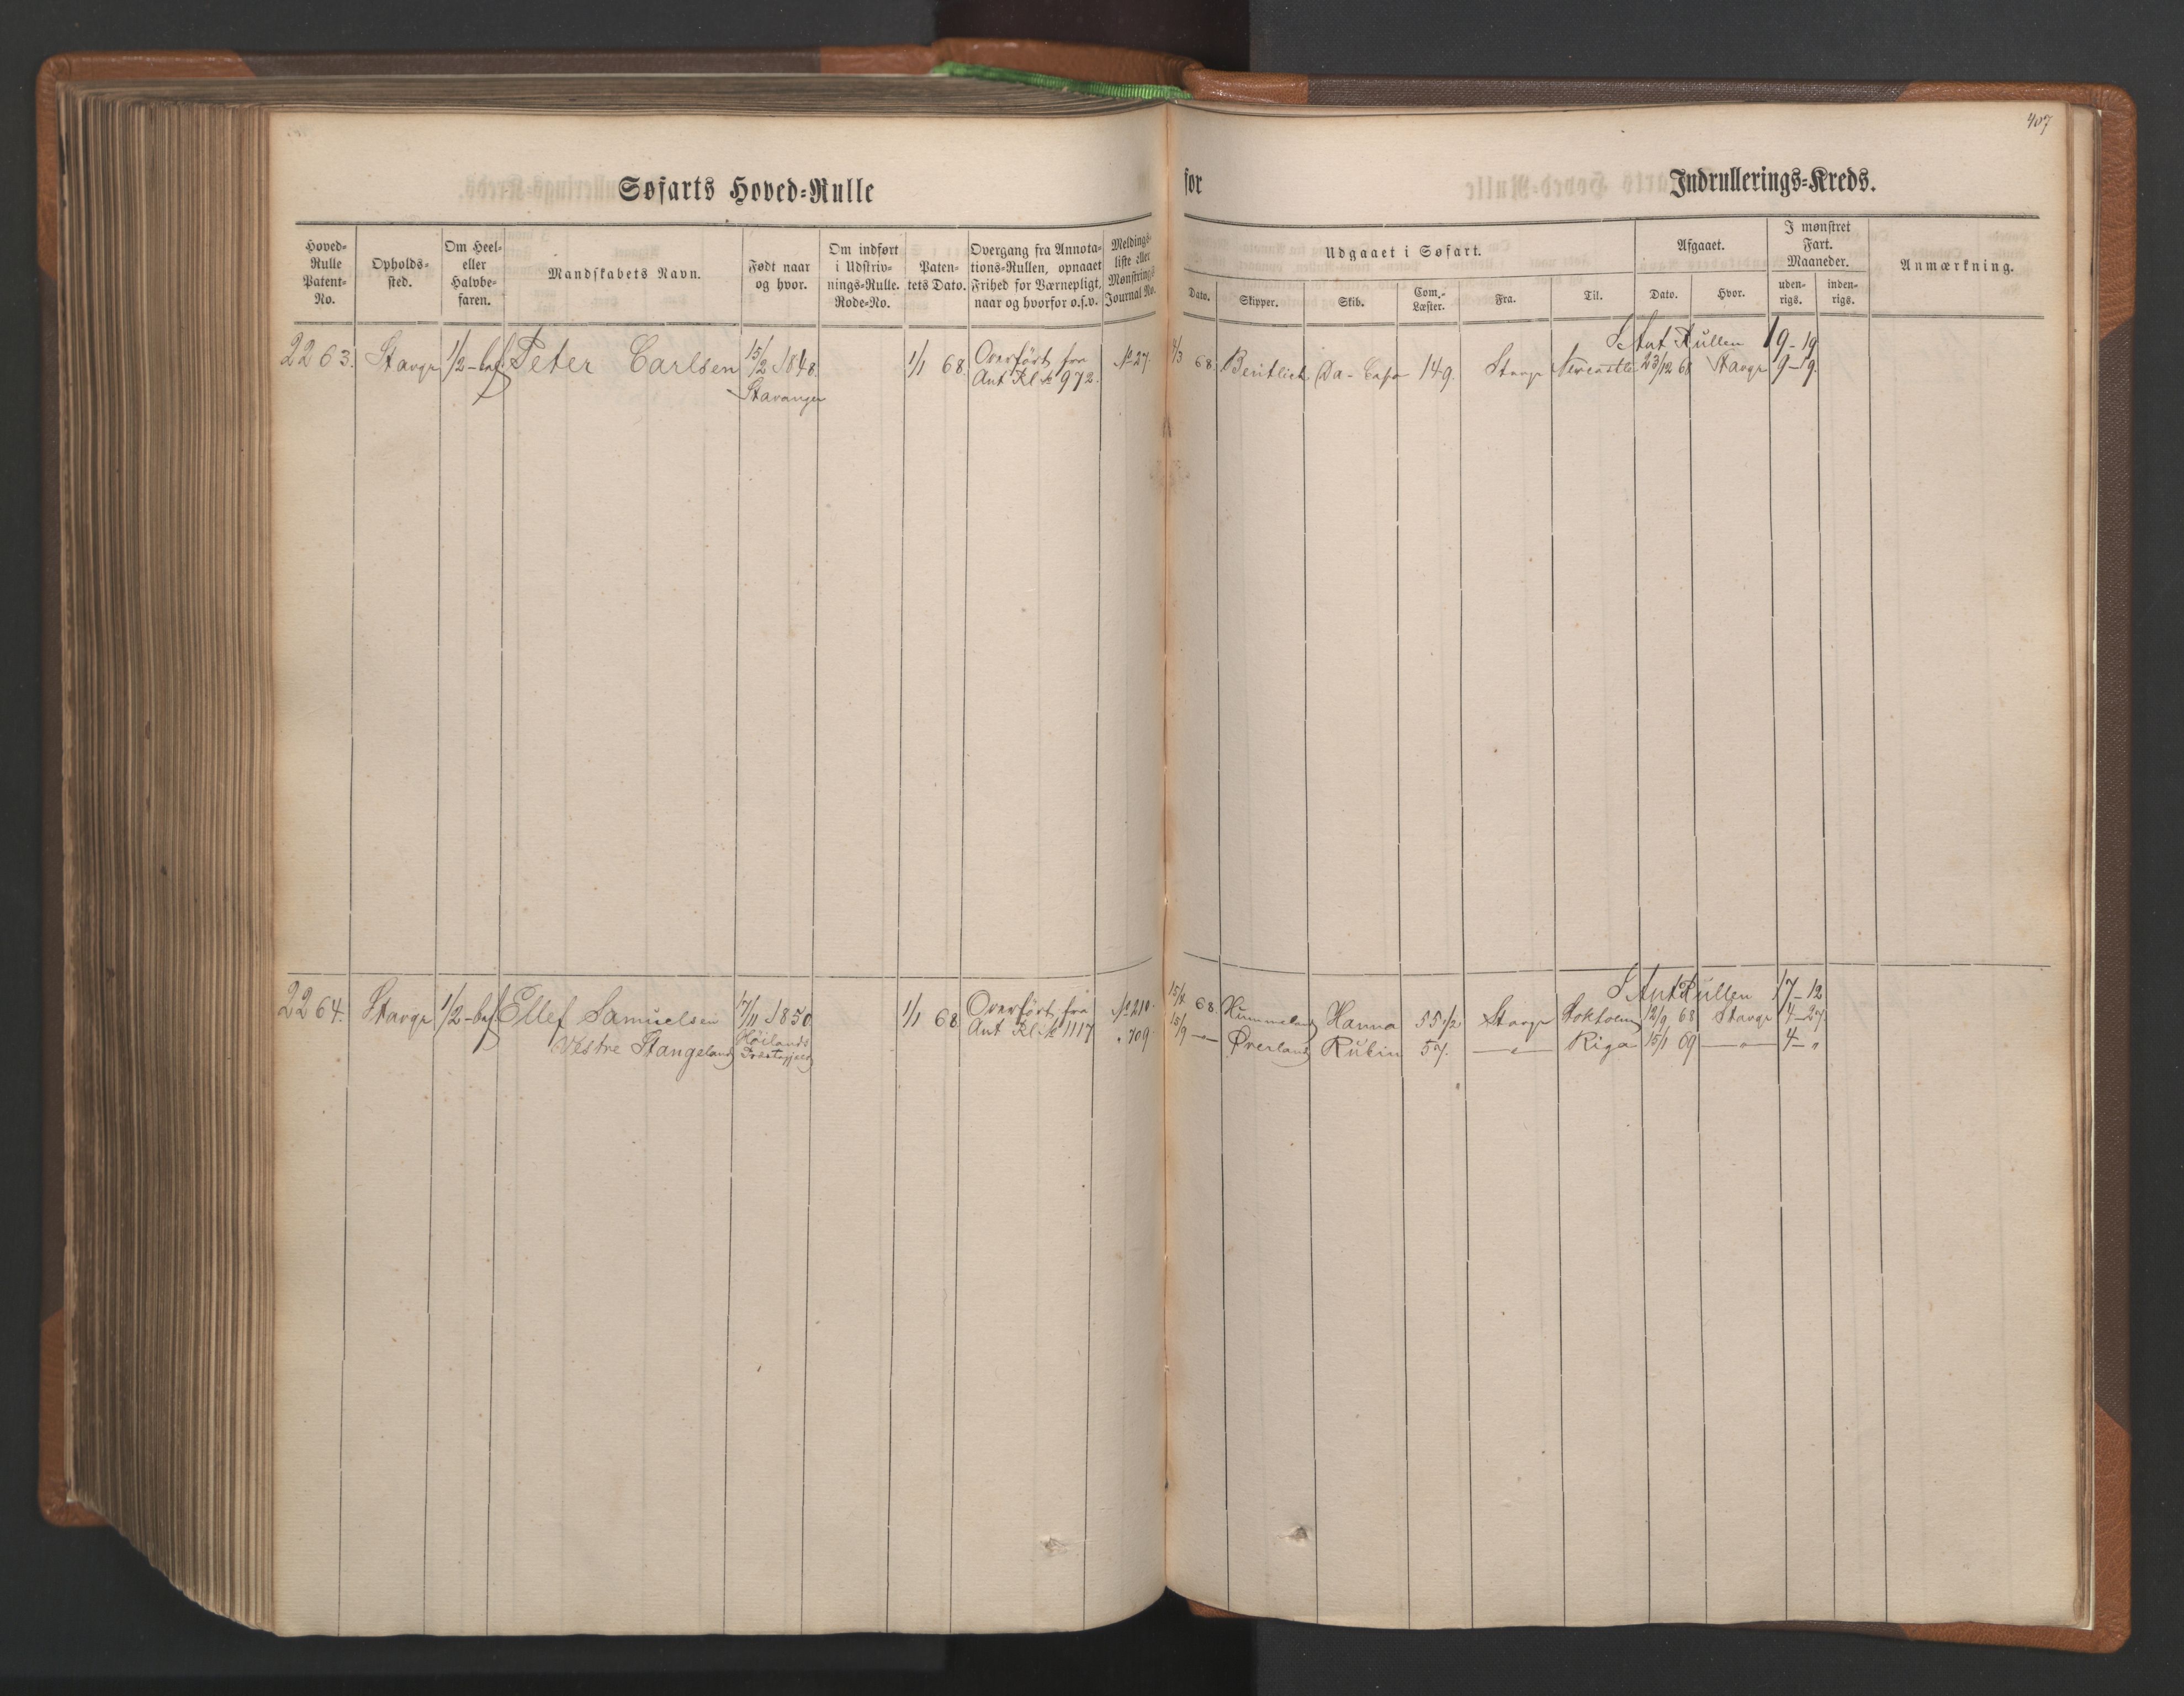 407
Søfarts Hoved=Rulle
for Indrullerings=Kreds.
Hoved=Rulle Patent=No.
Opholds=sted.
Om Heel= eller Halvbe=faren.
Mandskabets Navn.
Født naar og hvor.
Om indført i Udskriv=nings=Rulle. Rode=No.
Paten=tets Dato.
Overgang fra Annota=tions=Rullen, opnaaet Frihed for Værnepligt, naar og hvorfor o.s.v.
Meldings=liste eller Mønstrings Journal No.
Udgaaet i Søfart.
Dato.
Skipper.
Skib.
Com.=Læster.
Fra.
Til.
Afgaaet.
Dato.
Hvor.
I mønstret Fart. Maaneder.
uden=rigs.
inden=rigs.
Anmærkning.
I Ant Rullen 19-19
2263. Stavgr 1/2-bef Peter Carlsen 15/2 1848. 1/1 68. Overført fra No 27. 68. Da-Capo 149. Stavgr Newcastle 23/12 68 Stavgr 9-19.
Stavanger Ant Rl No 972.
I Ant Rullen 17-12
2264. Stavgr 1/2-bef Ellef Samuelsen 17/11 1850. 1/1 68 Overført fra No 210. 68. Hummeland Hanna 55 1/2 Stavgr Stokholm 12/9 68 Stavgr 4-27.
Vestre Stangeland Høilands Ant Rl No 1117 " 709. 15/9 -"- Øverland Rubin 57. -"- Riga 15/1 69 -"- 4-"
Præstegjeld